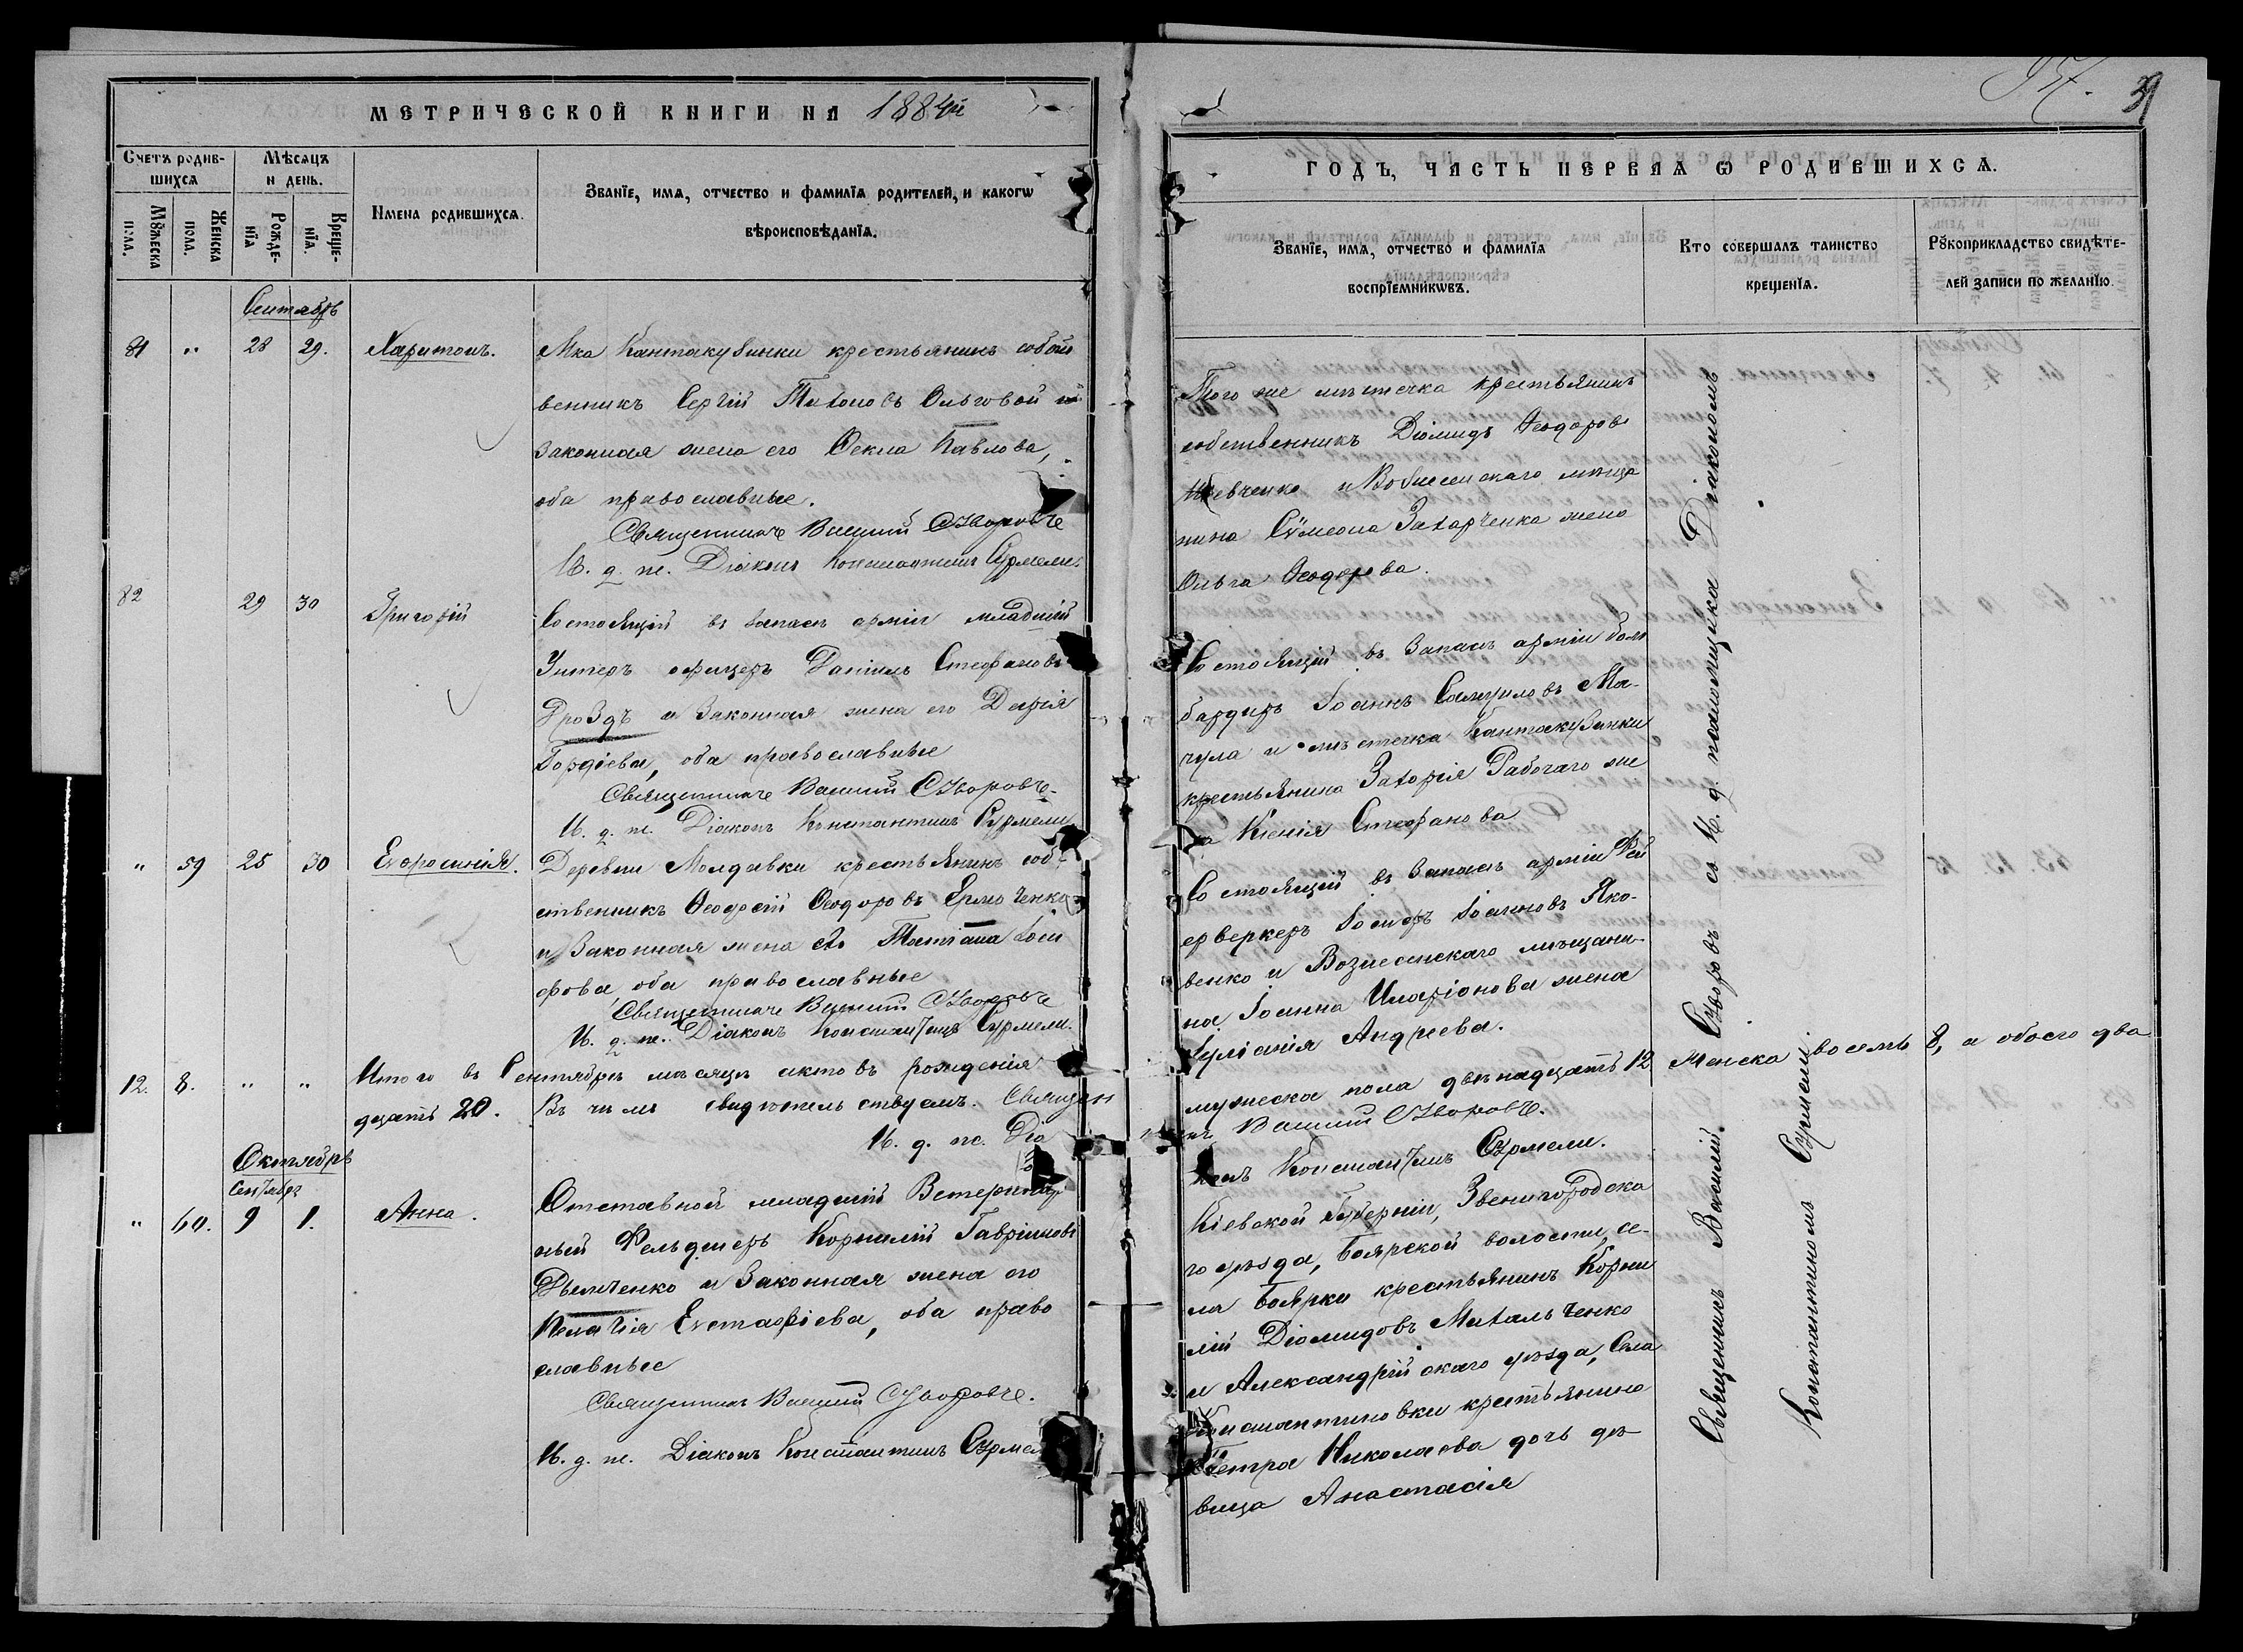 МЕТРИЧЕСКОЙ КНИГИ НА 1884й
Счетъ родив-
шихся
Мѣсяцъ
и день.
Имена родившихся.
Званїе, имя, отчество и фамилїя родителей, и какогѡ
вѣроисповѣданїя.
Мꙋжеска
пола.
Женска
пола.
Рожде-
нїя
Креще-
нїя.
Сентябрь
81 " 28 29. Харитонъ.
М-ка Кантакузинки крестьянинъ собст
венникъ Сергій Тихоновъ Ольговой и
законная жена его Ѳекла Павлова,
оба православные.
Священникъ Василій Сꙋворовъ
И. д. пс. Діаконъ Константинъ Сурмели
82 29 30 Григорій
Состоящій въ запасѣ арміи младшій
Унтеръ офицеръ Даніилъ Стефановъ
Дроздъ и законная жена его Дарія
Гордіева, оба православные
Священникъ Василій Сꙋворовъ
И. д. пс. Діаконъ Константинъ Сурмели
" 59 25 30 Евфросинія.
Деревни Молдавки крестьянинъ соб-
ственникъ Ѳеодосій Ѳеодоровъ Ермоченко
и законная жена его Татіана Іоси
фова, оба православные
Священникъ Василій Сꙋворовъ
И. д. пс. Діаконъ Константинъ Сурмели.
12. 8. " " Итого въ Сентябрѣ мѣсяцѣ актовъ рожденія
дцать 20. Въ чемъ свидѣтельствуемъ. Священ
И. д. пс. Діа
Октябрь
Сентябрь
" 60. 9 1. Анна.
Отставной младшій Ветеринар
ный Фельдшеръ Корнилій Гавріиловъ
Дьяченко и законная жена его
Пелагія Евстафіева, оба право
славные
Священникъ Василій Сꙋворовъ.
И. д. пс. Діаконъ Константинъ Сурмели
39
ГОДЪ, ЧАСТЬ ПЕРВАЯ Ѡ РОДИВШИХСЯ.
Званїе, имя, отчество и фамилїя
воспрїемникѡвъ.
Кто совершалъ таинство
крещенїя.
Рꙋкоприкладство свидѣте-
лей записи по желанїю.
Того же мѣстечка крестьянинъ
собственникъ Діомидъ Ѳеодоровъ
Шевченко и Вознесенскаго мѣща
нина Сѵмеона Захарченка жена
Ольга Ѳеодорова.
Состоящій въ запасѣ арміи бом
бардиръ Іоаннъ Самуиловъ Ма-
чула и мѣстечка Кантакузинки
крестьянина Захарія Рабочаго же
на Ксенія Стефанова
Состоящій въ запасѣ арміи Фей
ерверкеръ Іосифъ Іоанновъ Яко-
венко и Вознесенскаго мѣщани-
на Іоанна Иларіонова жена
Іуліанія Андреева.
мужеска пола двѣнадцать 12 Женска восемь 8, а обоего два
никъ Василій Сꙋворовъ.
конъ Константинъ Сурмели.
Кіевской Губерніи, Звенигородска
го уѣзда, Боярской волости, се-
ла Боярки крестьянинъ Корни
лій Діомидовъ Михальченко
и Александрійскаго уѣзда, Села
Константиновки крестьянина
Петра Николаева дочь дѣ-
вица Анастасія
Священникъ Василій Сꙋворовъ съ И. д. псаломщика Діакономъ
Константиномъ Сурмели